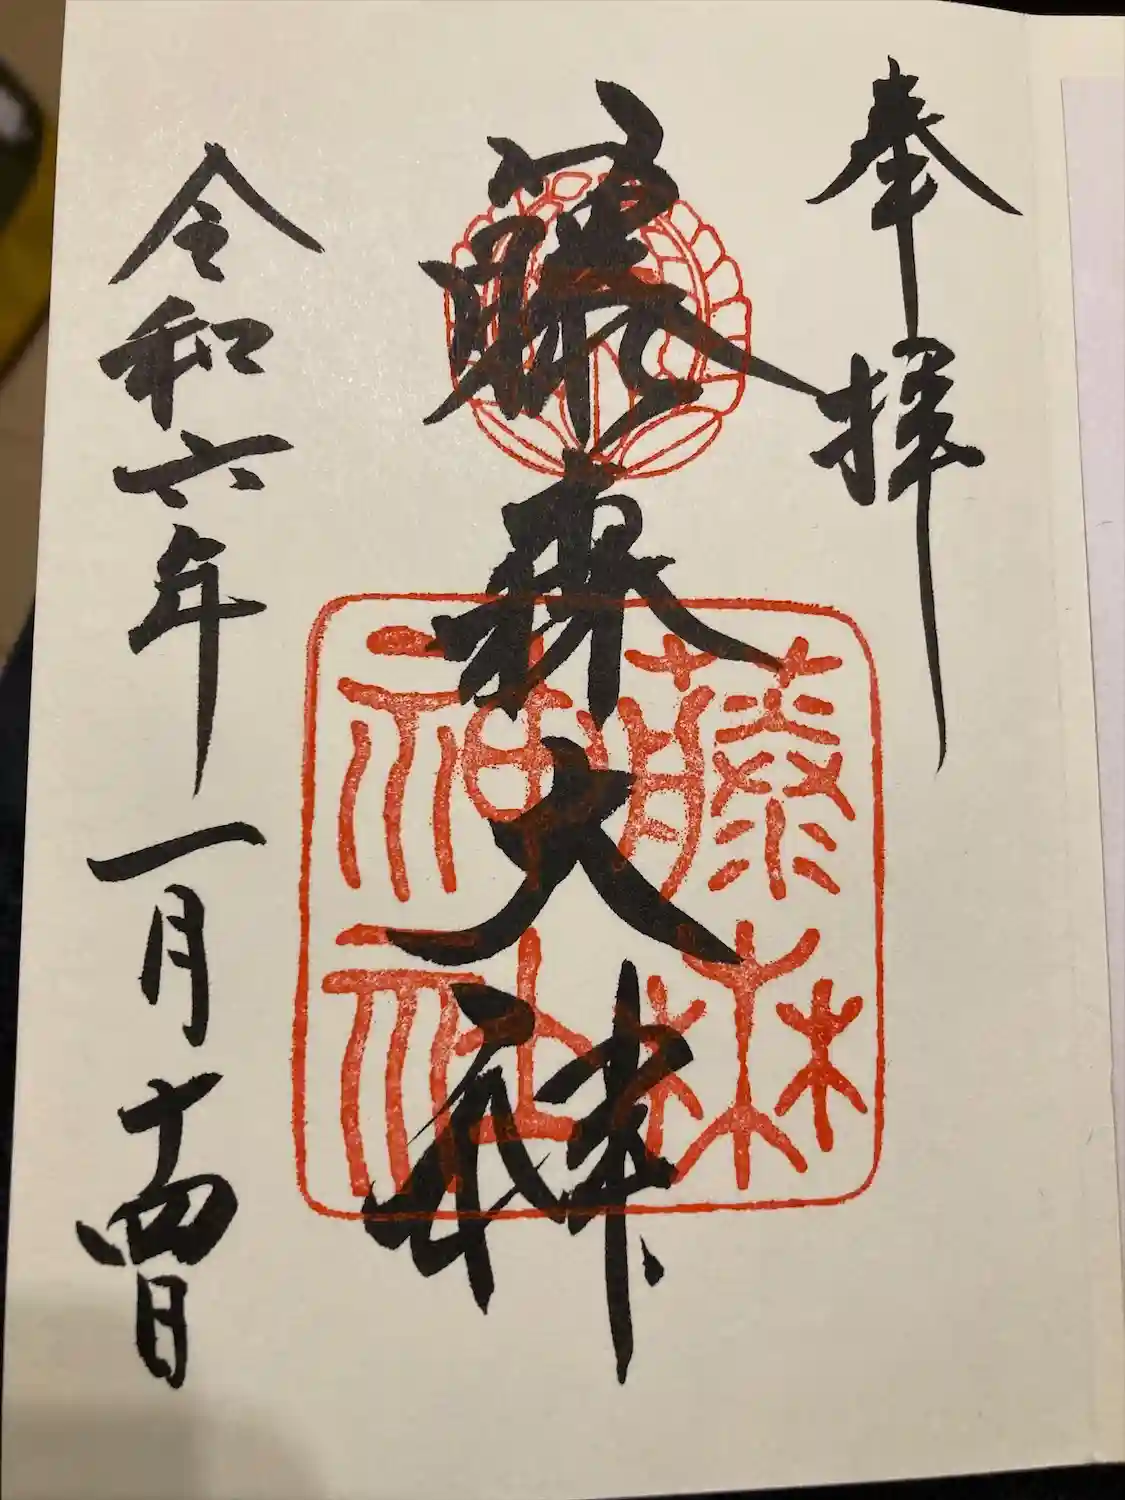 奉拝
藤森大神
藤森
神社
令和六年一月十四日